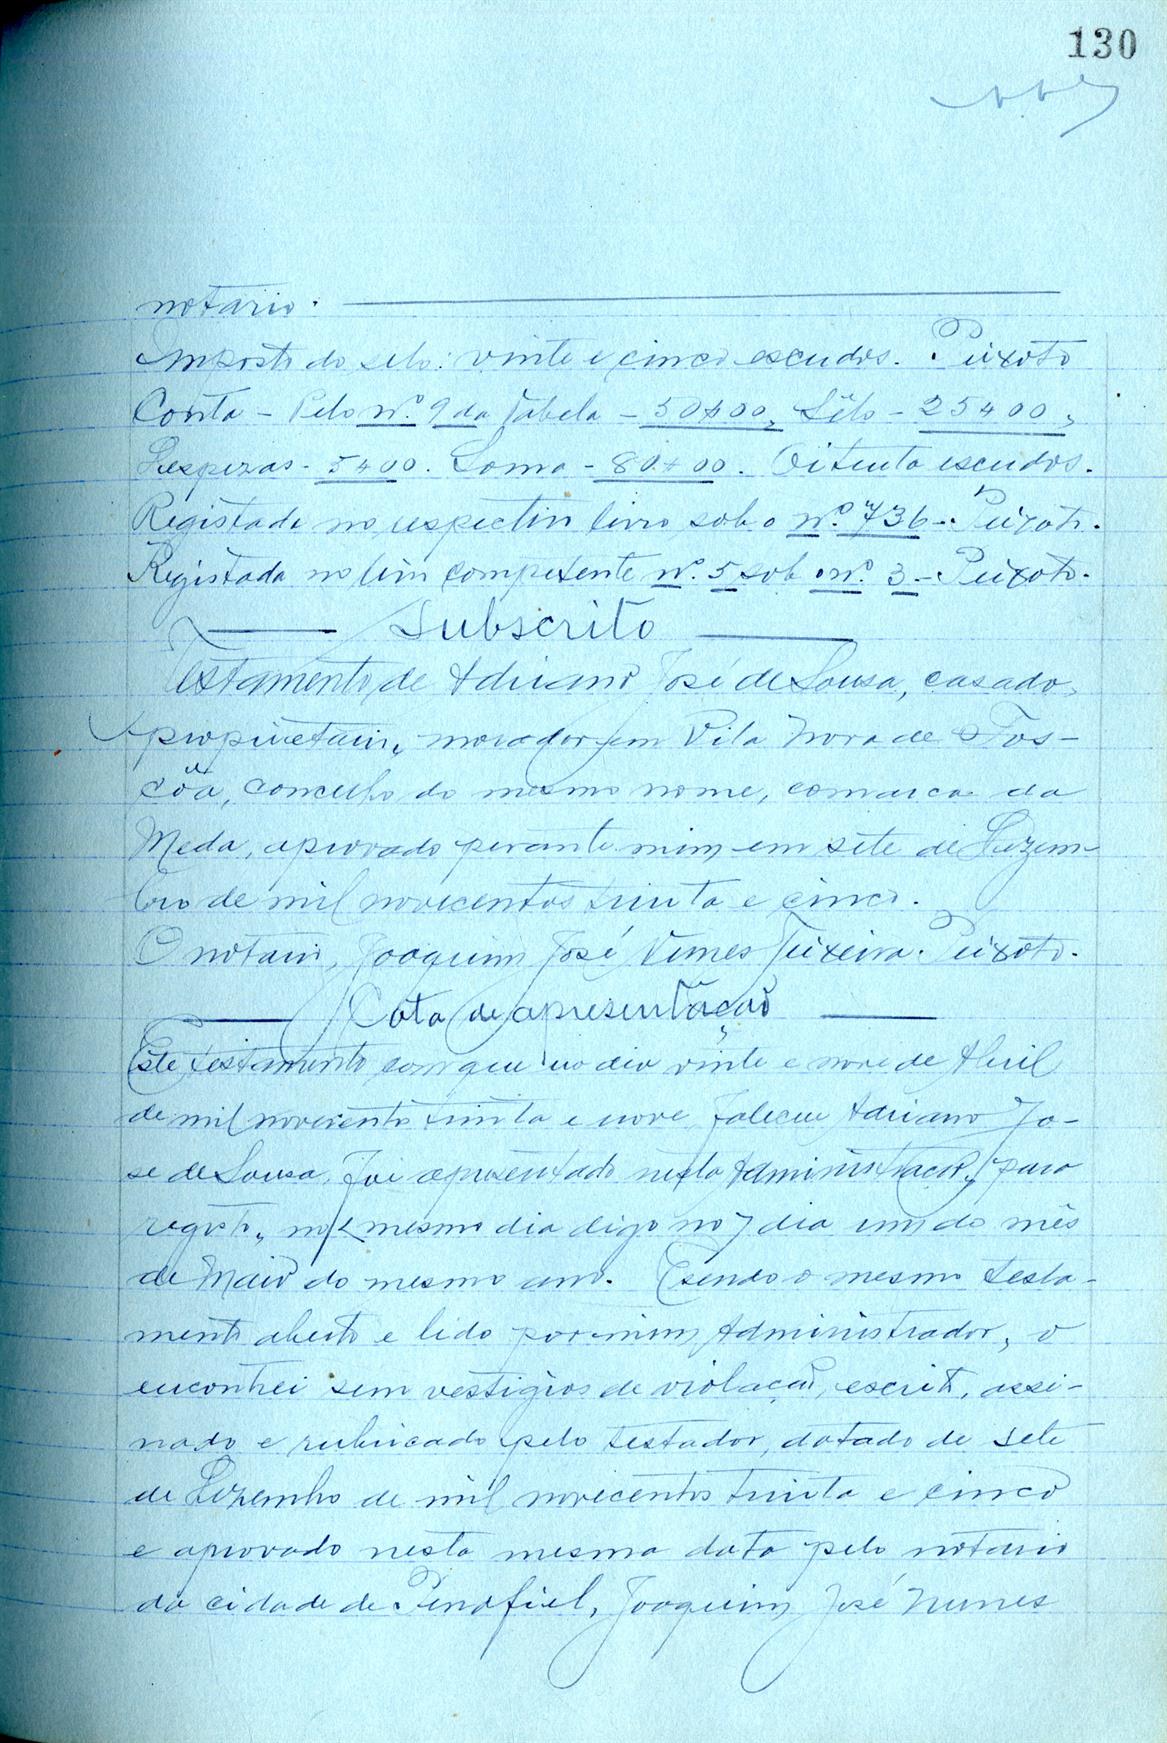 130
notario. 
Imposto do selo: vinte e cinco escudos. Peixoto
Conta - Pelo nº. 9 da Tabela - 50$00, Sêlo - 25$00,
Despezas - 5$00. Soma - 80$00. Oitenta escudos.
Registado no respectivo livro sob o nº. 736 -. Peixoto.
Registada no livro competente nº. 5 sob o nº. 3 -. Peixoto.
Subscrito
Testamento de Adriano José de Sousa, casado,
proprietario, morador em Vila Nova de Fos-
côa, concelho do mesmo nome, comarca da
Meda, aprovado perante mim em sete de Dezem-
bro de mil novecentos trinta e cinco.
O notario, Joaquim José Nunes Teixeira. Peixoto.
Cota de apresentação
Este testamento com que no dia vinte e nove de Abril
de mil novecentos trinta e nove faleceu Adriano Jo-
se de Sousa, foi apresentado nesta Administração, para
registo, no < mesmo dia digo no > dia um do mês
de Maio do mesmo ano. E sendo o mesmo testa-
mento aberto e lido por mim Administrador, o
encontrei sem vestigios de violação, escrito, assi-
nado e rubricado pelo testador, datado de sete
de Dezembro de mil novecentos trinta e cinco
e aprovado nesta mesma data pelo notario
da cidade de Penafiel, Joaquim José Nunes